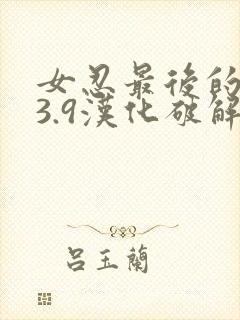 女忍最後的
3.9漢化破解
呂玉蘭